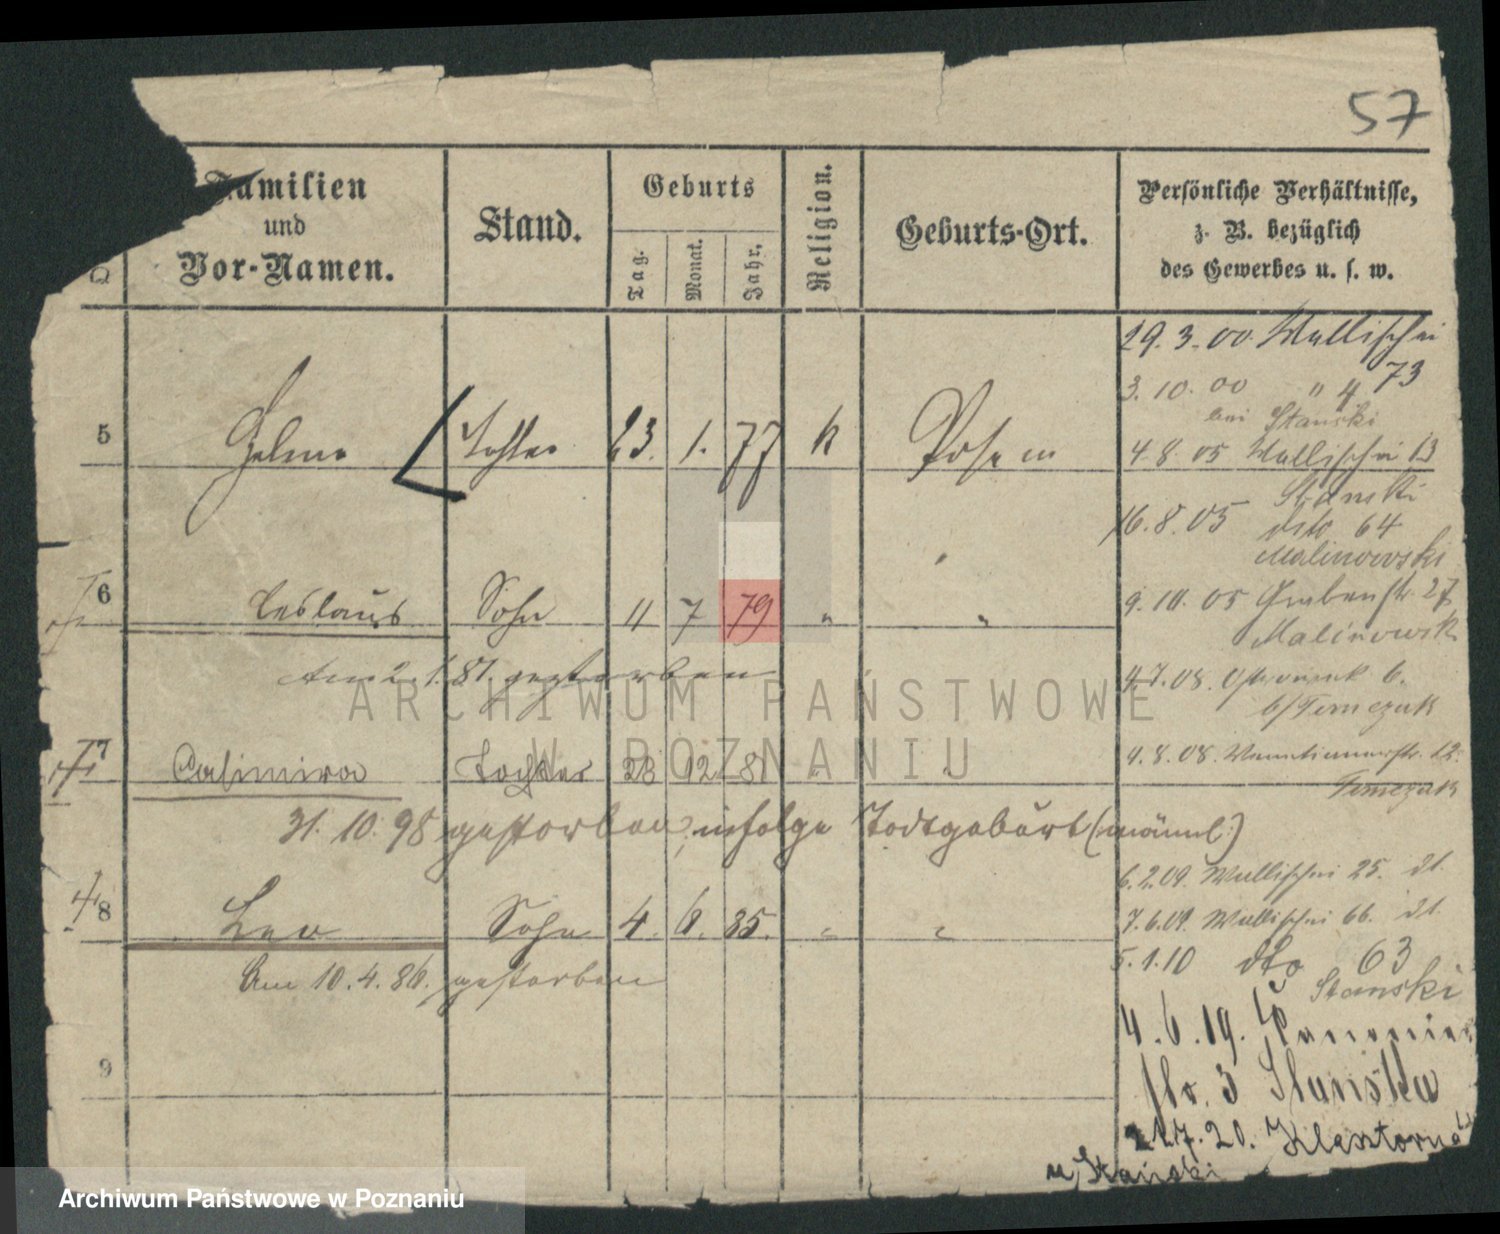 57
Familien
und
Vor-Namen.
Stand.
Geburts
Tag.
Monat.
Jahr.
Religion.
Geburts-Ort.
Persönliche Verhältnisse,
z. B. bezüglich
des Gewerbes u. s. w.
29. 3. 00. Wallischei
3. 10. 00 " 4 73
bei Stanski
5 Tochter 23. 1. 77 k Posen
4. 8. 05 Wallischei 13
Stanski
16. 8. 05 dito 64
Malinowski
6 Ceslaus Sohn 11 7 79 " "
9. 10. 05 Grabenstr. 27
Malinowsk
Am 2. 1. 81. gestorben
4. 7. 08. Ostrowek 6.
b/Temczak
7 Casimira Tochter 28 12 81 " "
4. 8. 08. 12.
Temczak
31. 10. 98 gestorben, infolge Todtgeburt (männl.)
6. 2. 09. Wallischei 25. St.
8 Leo Sohn 4. 6. 85. " "
7. 6. 09. Wallischei 66. St.
Am 10. 4. 86. gestorben
5. 1. 10 dto 63
Stanski
4. 6. 19. Kanonier
str. 3 Stanska
9
21.7.20. Klasztorna
u Stański
ARCHIWUM PAŃSTWOWE
W POZNANIU
Archiwum Państwowe w Poznaniu